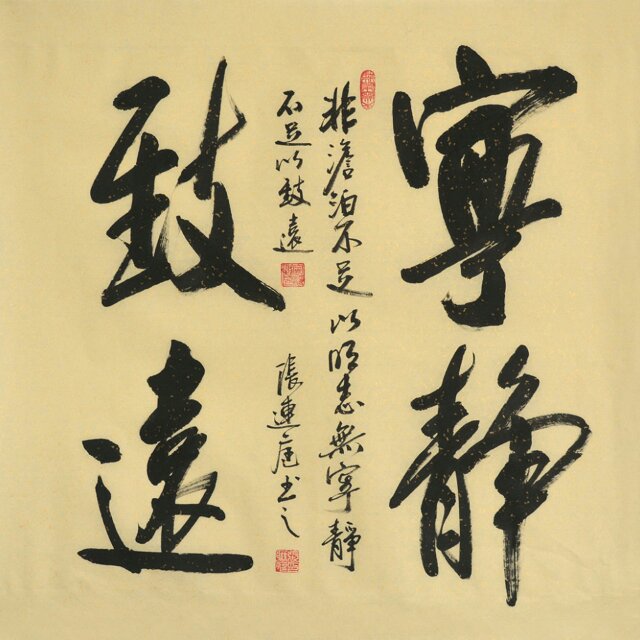 寧靜
非澹泊不足以明志無寧靜
不足以致遠
張連庭书之
致遠